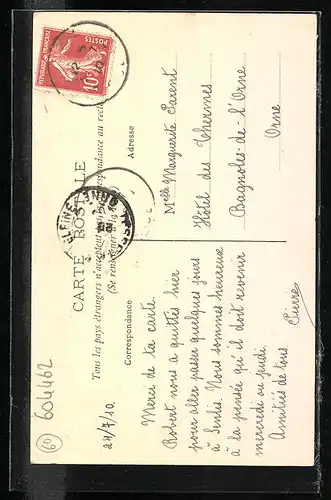 CARTE POSTALE
Tous les pays étrangers n'acceptent pas la correspondance au recto
(Se renseigner à la Poste)
Correspondance
Adresse
24/7/10.
Merci de ta carte
Robert nous a quittés hier
pour aller passer quelques jours
à Senlis. Nous sommes heureuse
à la pensée qu'il doit revenir
mercredi ou jeudi.
Amitiés de tous
Pierre
Melle Marguerite Parent
Hôtel des Thermes
Bagnoles-de-l'Orne
Orne
POSTES
10c
ORNE
604462
60